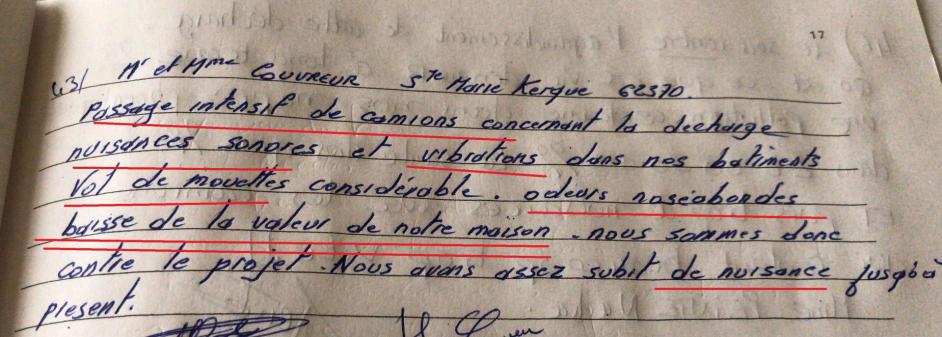 17
43/ Mr et Mme COUVREUR Ste Marie Kerque 62370.
Passage intensif de camions concernant la decharge
nuisances sonores et vibrations dans nos batiments
Vol de mouettes considérable. odeurs noséabondes
baisse de la valeur de notre maison. nous sommes donc
contre le projet. Nous avons assez subit de nuisance jusqu'à
present.